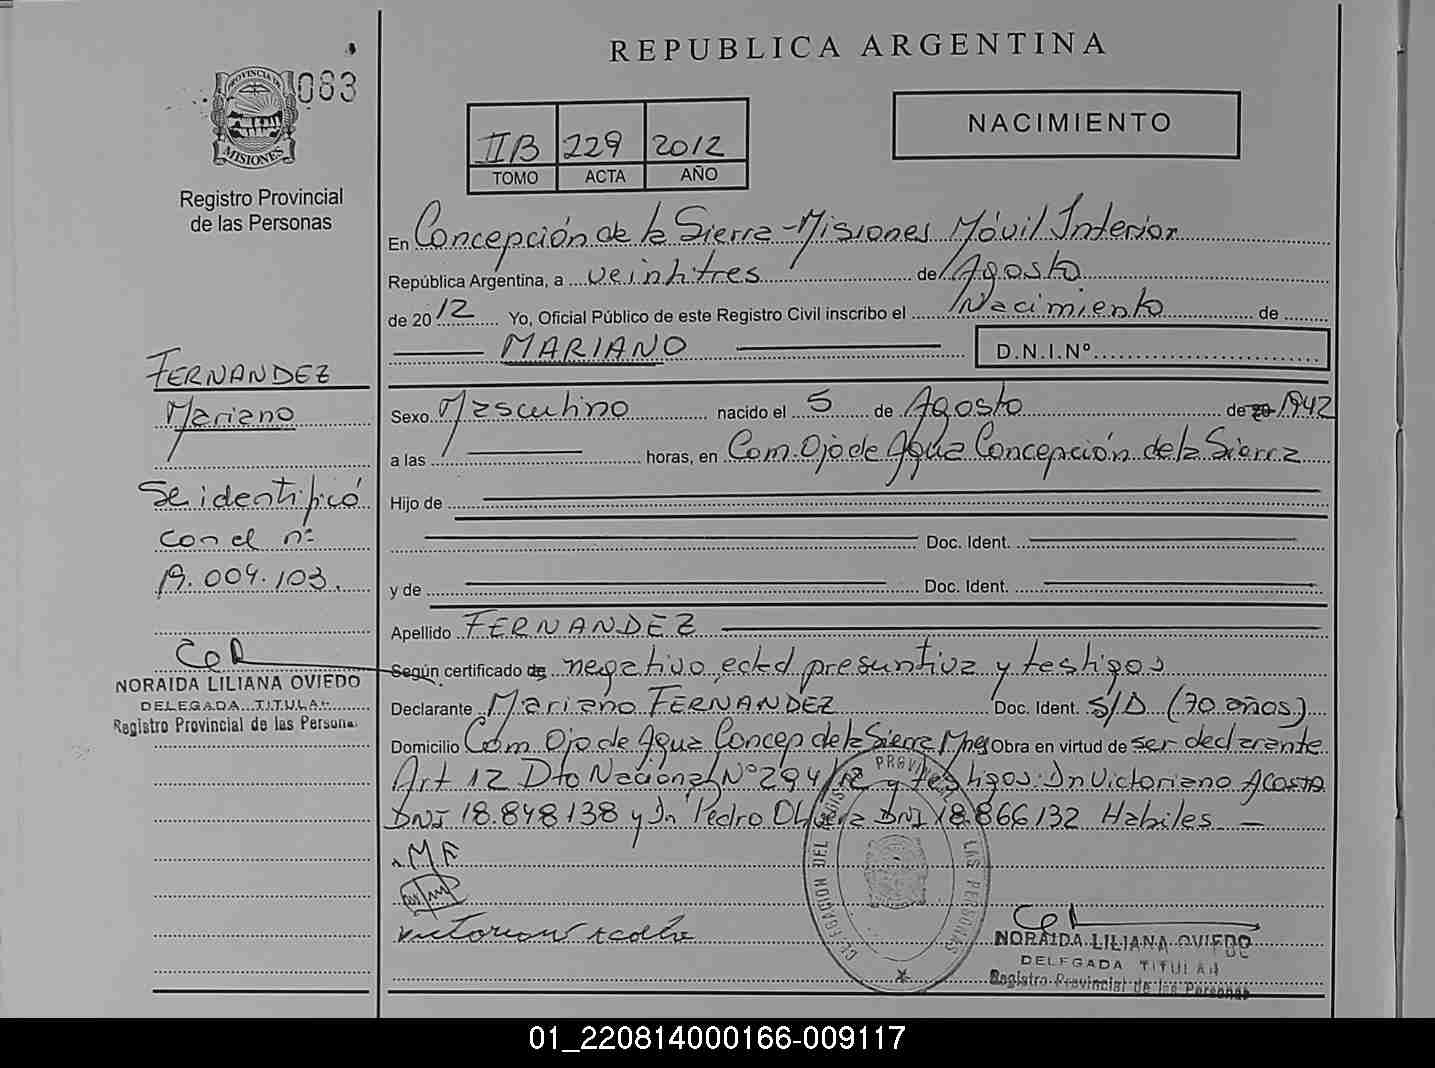 REPUBLICA ARGENTINA
083
PROVINCIA DE
MISIONES
Registro Provincial
de las Personas
IIB 229 2012
TOMO ACTA AÑO
NACIMIENTO
En Concepción de la Sierra-Misiones Móvil Interior
República Argentina, a veintitres de Agosto
de 2012 Yo, Oficial Público de este Registro Civil inscribo el Nacimiento de
MARIANO D.N.I.Nº
FERNANDEZ
Mariano
Se identificó
con el nº
19.009.103.
NORAIDA LILIANA OVIEDO
DELEGADA TITULAR
Registro Provincial de las Persona
Sexo Masculino nacido el 5 de Agosto de 20 1942
a las horas, en Com. Ojo de Agua Concepción de la Sierra
Hijo de
Doc. Ident.
y de Doc. Ident.
Apellido FERNANDEZ
Según certificado de negativo, edad presuntiva y testigos
Declarante Mariano FERNANDEZ Doc. Ident. S/D (70 años)
Domicilio Com Ojo de Agua Concep de la Sierra Mnes Obra en virtud de ser declarante
Art 12 Dto Nacional Nº 294/12 y testigos: Dn Victoriano ACOSTA
DNI 18.848.138 y Dn Pedro DNI 18.866.132 Habiles
M F
Victoriano Acosta
DELEGACION DEL REGISTRO PROVINCIAL DE LAS PERSONAS
NORAIDA LILIANA OVIEDO
DELEGADA TITULAR
Registro Provincial de las Personas
01_220814000166-009117